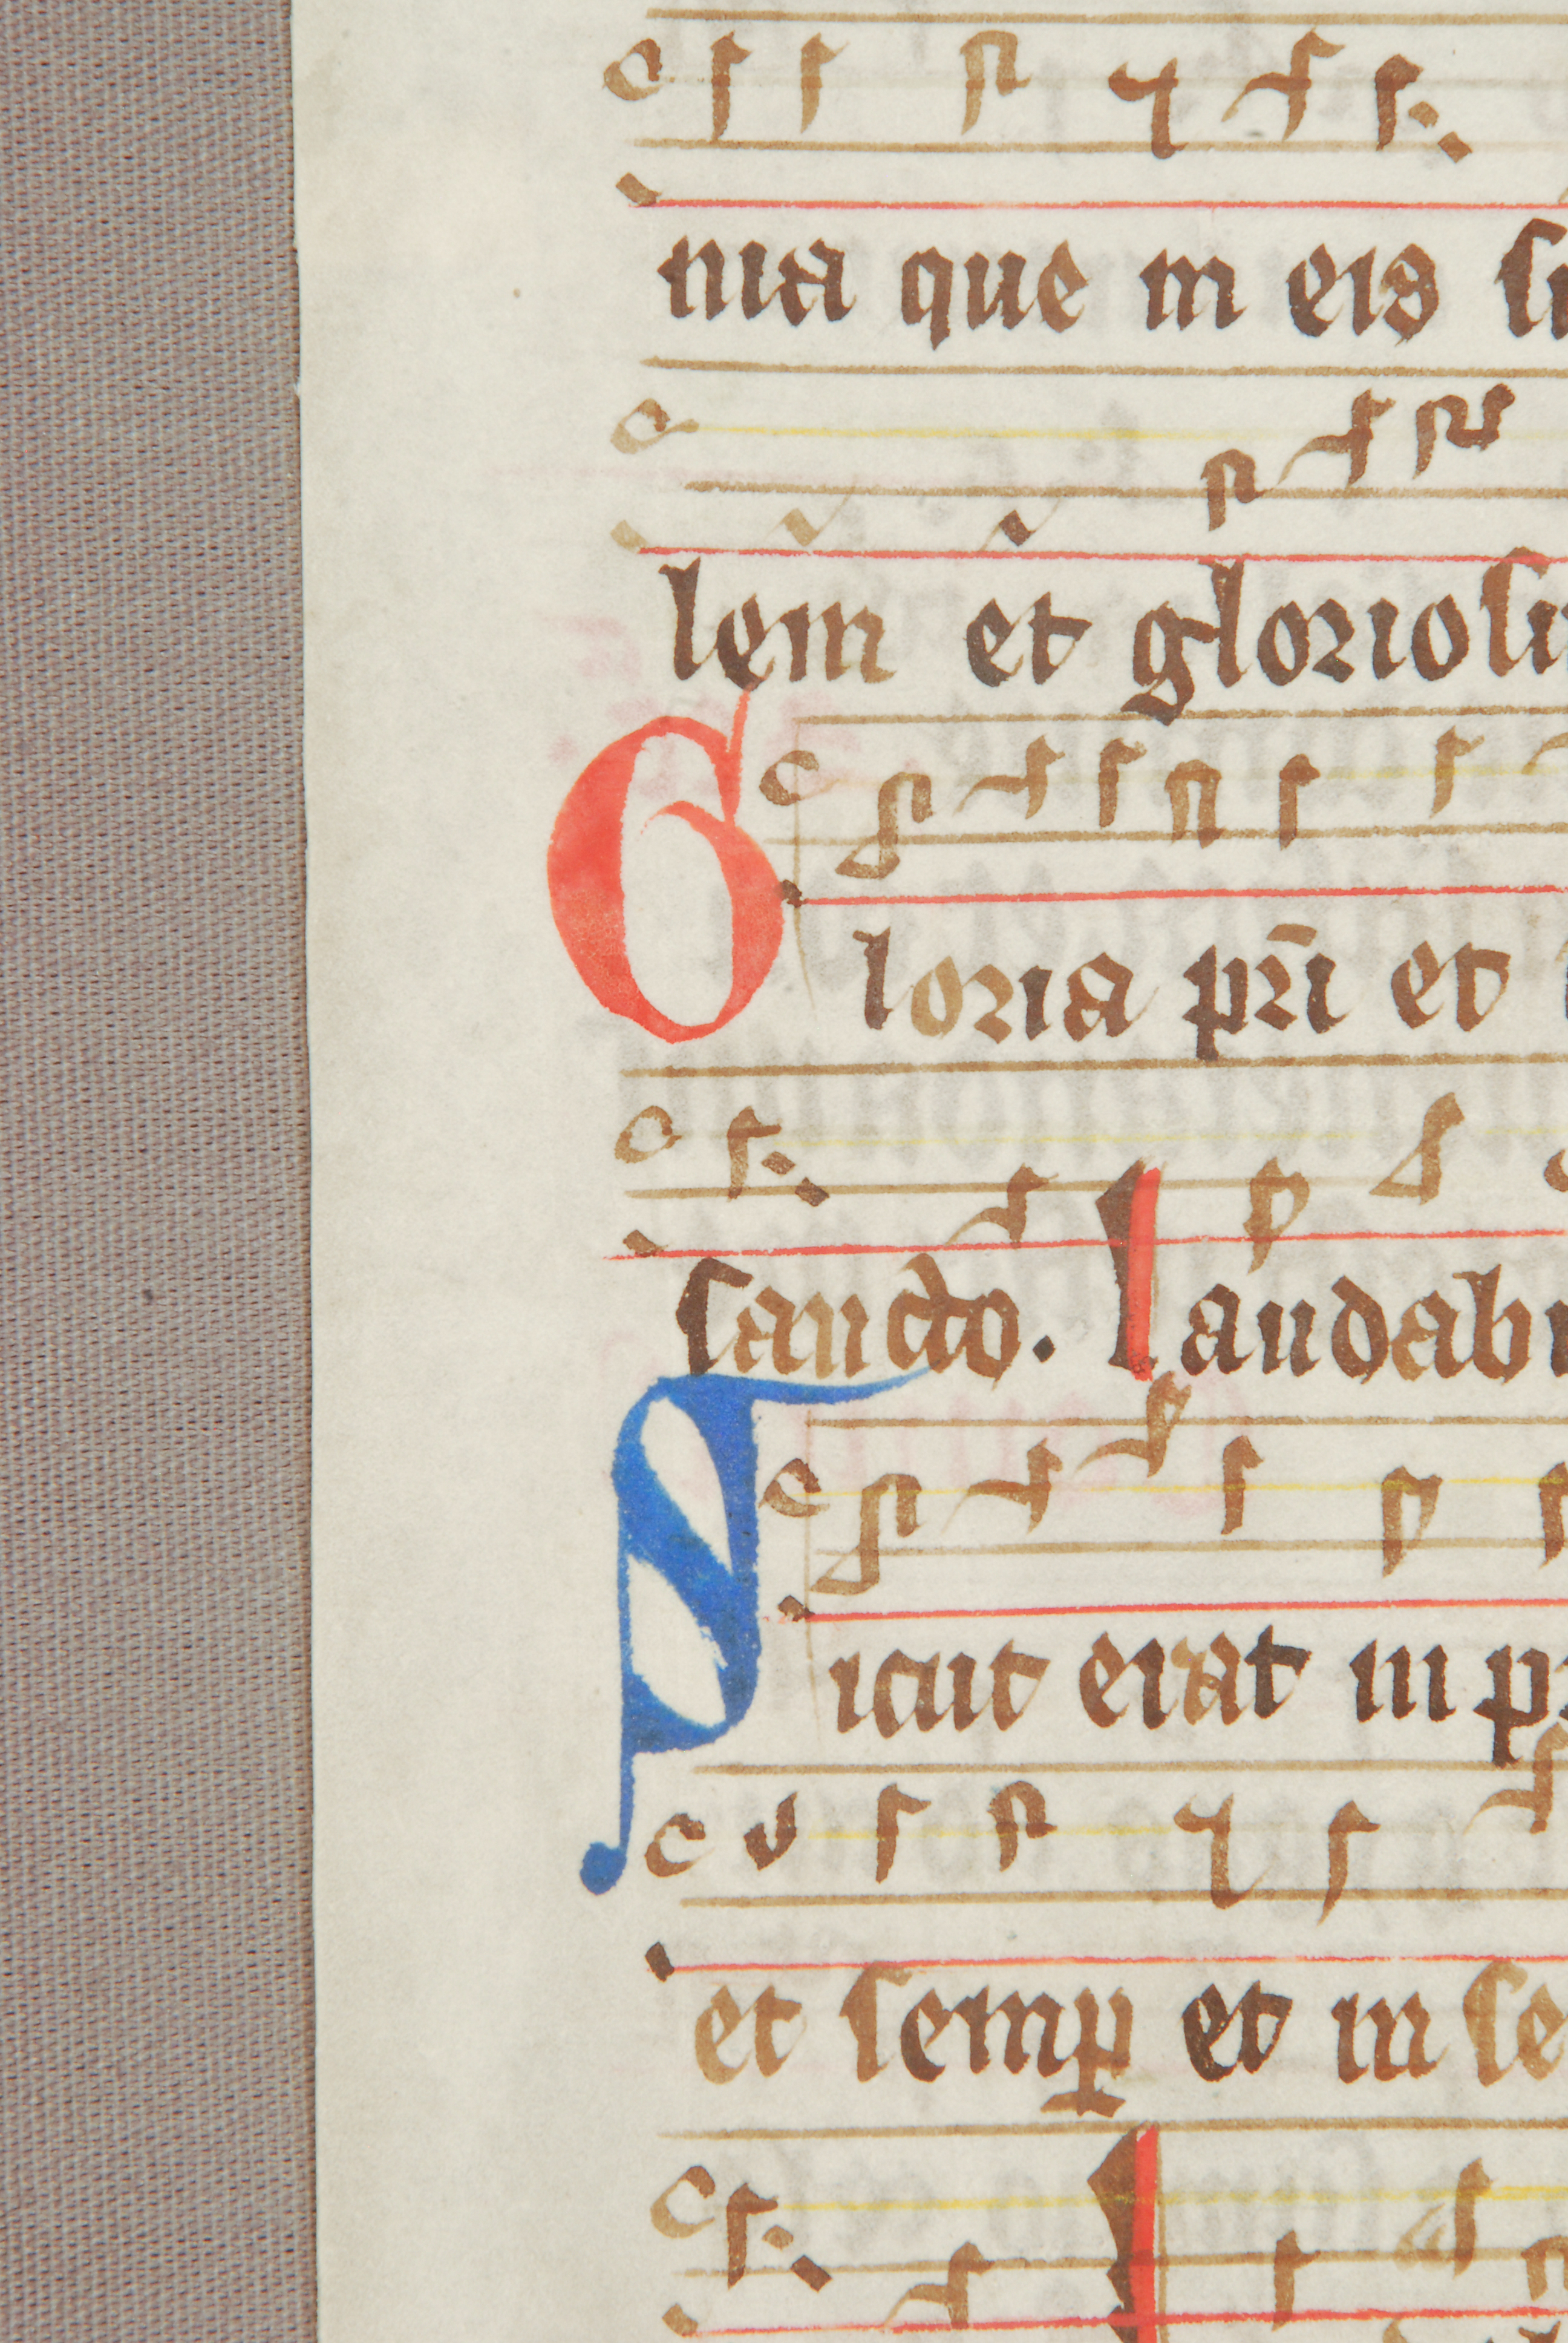 nia que in eis
lem et gloriosu
Gloria pri et
sancto. Laudabi
Sicut erat in
et semp et in se